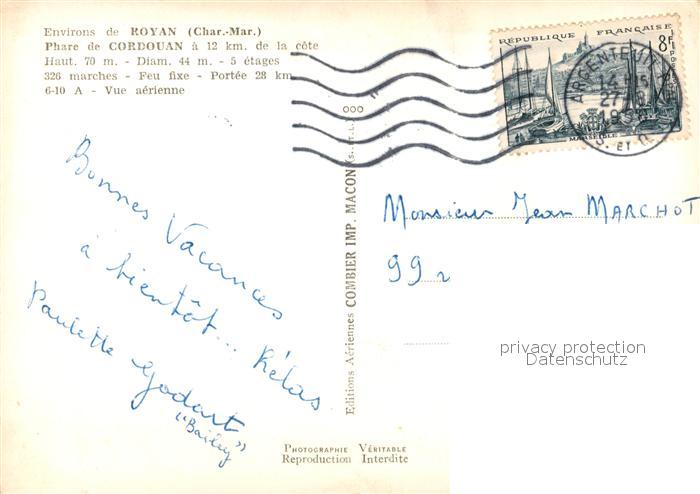 Environs de ROYAN (Char.-Mar.)
Phare de CORDOUAN à 12 km. de la côte
Haut. 70 m. - Diam. 44 m. - 5 étages
326 marches - Feu fixe - Portée 28 km
6-10 A - Vue aérienne
Bonnes Vacances
à bientôt... Hélas
Paulette Godart
"Bailey"
Editions Aériennes COMBIER IMP. MACON (S.-ET-L.)
RÉPUBLIQUE FRANÇAISE
8F
MARSEILLE
ARGENTEUIL
27
S. ET O.
Monsieur Jean MARCHOT
99
privacy protection
Datenschutz
PHOTOGRAPHIE VÉRITABLE
Reproduction Interdite